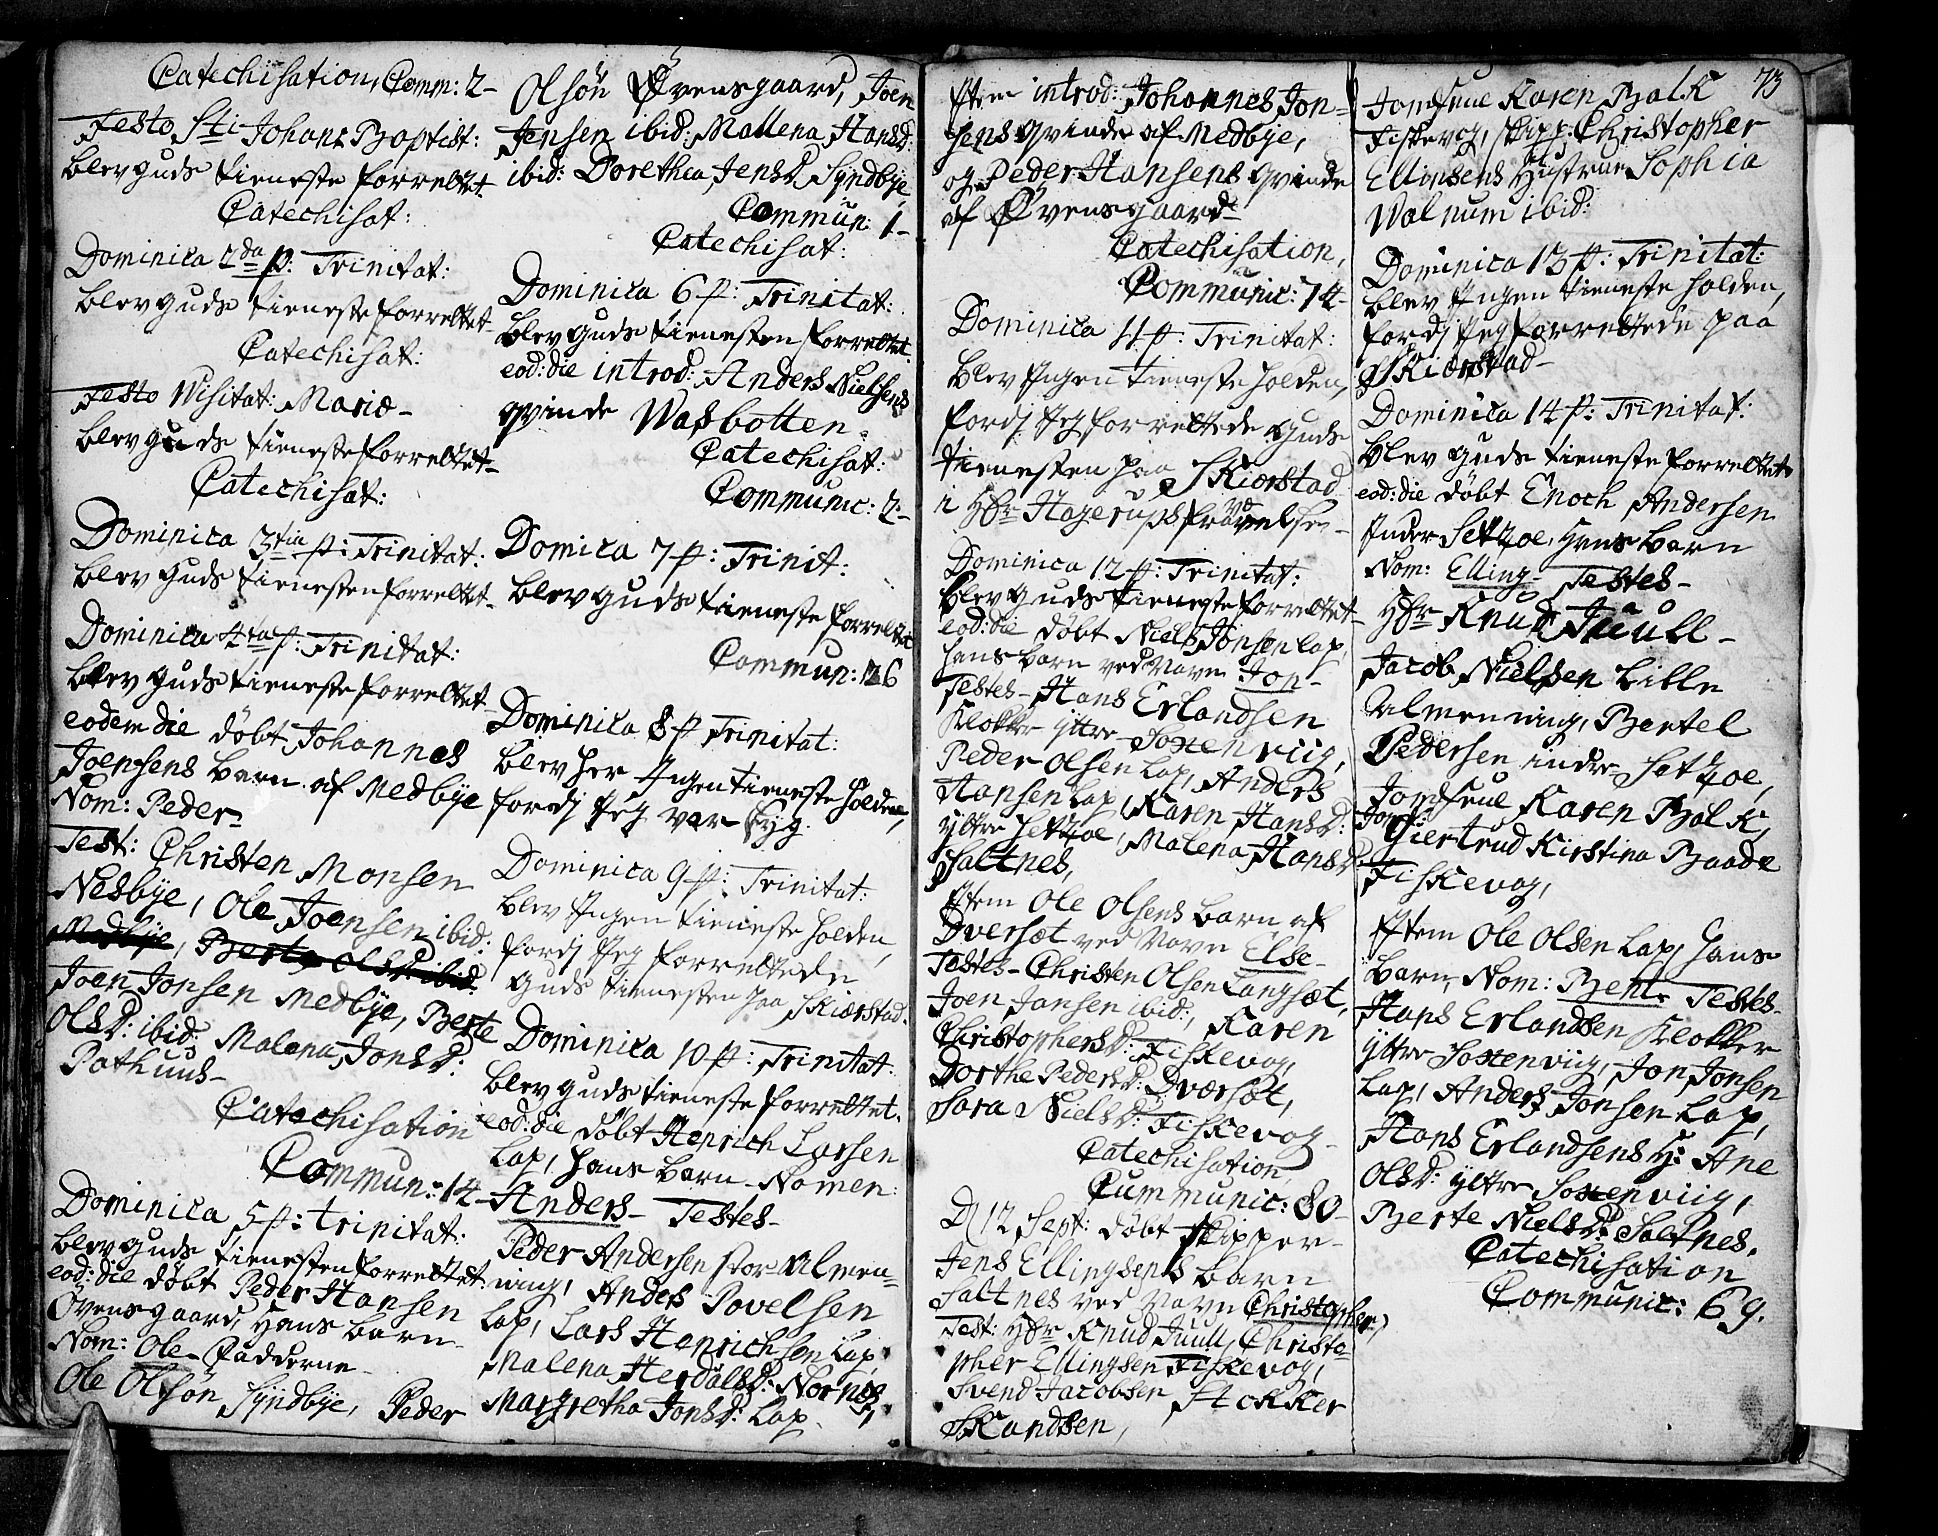 Catechisation, Comm: 2-
Festo Sti Johans Baptist:
blev guds tieneste forrettet
Catechisat:
Dominica 2da p: Trinitat:
blev guds tieneste forrettet-
Catechisat:
Festo Visitat: Mariæ-
blev guds tieneste forrettet-
Catechisat:
Dominica 3tia p: Trinitat:
blev guds tienesten forrettet-
Dominica 4ta p: Trinitat:
blev guds tieneste forrettet
eodem die döbt Johannes
Joensens barn af Medbÿe
Nom: Peder-
Test: Christen Monsen
Nesbÿe, Ole Joensen ibid:
Medbÿe, Berte Olsd: ibid:
Joen Jonsen Medbÿe, Berte
Olsd: ibid: Malena Jonsd:
Pathuus-
Catechisation
Commun: 14-
Dominica 5 p: trinitat:
blev guds tienesten forrettet
eod: die döbt Peder Hansen
Övensgaard, Hans barn-
Nom: Ole- Fadderne-
Ole Olsön Sÿndbÿe, Peder
Olsön Øvensgaard, Joen
Jensen ibid: Mallena Hansd:
ibid: Dorethea Jensd: Sÿndbÿe,
Commun: 1-
Catechisat:
Dominica 6 p: Trinitat:
blev guds tienesten forrettet.
eod: die introd: Anders Nielsens
qvinde Wasbotten-
Catechisat:
Communic: 2-
Domica 7 p: Trinit:
blev guds tieneste forrettet
Commun: 26
Dominica 8 p Trinitat:
blev her Ingen tieneste holden,
fordj Jeg var syg.
Dominica 9 p: Trinitat:
blev Ingen tieneste holden,
fordj Jeg forrettede
Guds tienesten paa Skiærstad.
Dominica 10 p: Trinitat:
blev guds tieneste forrettet.
eod: die döbt Henrich Larsen
Lap, hans barn- Nomen:
Anders- Testes-
Peder Andersen stor Almen-
ning, Anders Povelsen
Lap, Lars Henrichsen Lap
Malena Herdalsd: Nornes,
Margretha Jonsd: Lap.
73
Item introd: Johannes Jon-
sens qvinde af Medbye,
og Peder Hansens qvinde
af Øvensgaard-
Catechisation,
Communic: 74-
Dominica 11 p: Trinitat:
blev Ingen tieneste holden,
fordj Jeg forrettede Guds
tienesten paa Skiærstad
i Hr Hagerups fraværelse-
Dominica 12 p: Trinitat:
blev guds tieneste forrettet-
eod: die döbt Niels Jonsen Lap,
hans barn ved Navn Jon-
Testes- Hans Erlandsen
Klokker ÿttre Soxenviig,
Peder Olsen Lap, Anders
Hansen Lap, Karen Hansd:
ÿttre Setzoe, Malena Hansd:
Saltnes,
Item Ole Olsens barn af
Dversæt ved Navn Else-
Testes- Christen Olsen Langsæt,
Joen Jansen ibid:, Karen
Christophersd: Fiskevog,
Dorthe Pedersd: Dværsæt,
Sara Nielsd: Fiskevog-
Catechisation,
Cummunic: 80-
D 12 Sept: döbt Skipper-
Jens Ellingsens barn
Saltnes ved Navn Christopher,
Test: Hr Knud Juull, Christo-
pher Ellingsen Fiskevog,
Svend Jacobsen Stokker
Skandsen,
Jomfrue Karen Balk
Fiskevog, skipp: Christopher
Ellinsens Hustrue Sophia
Walnum ibid:
Dominica 13 p: Trinitat:
blev Ingen tieneste holden,
fordj Jeg forrettede paa
Skiærstad-
Dominica 14 p: Trinitat:
blev guds tieneste forrettet-
eod: die döbt Enoch Andersen
Inder Setzoe, Hans barn
Nom: Elling- Testes-
Hr Knud Juull-
Jacob Nielsen Lille
Almenning, Bertel
Pedersen indre Setzoe,
Jomfrue Karen Balk,
Jomf: Giertrud Kirstina Baade
Fiskevog,
Item Ole Olsen Lap, hans
barn, Nom: Bent- Testes-
Hans Erlandsen Klokker
ÿttre Soxenviig, Jon Jonsen
Lap, Anders Jonsen Lap,
Hans Erlandsens H: Ane
Olsd: ÿttre Soxenviig,
Berte Nielsd: Saltnes.
Catechisation
Communic: 69.